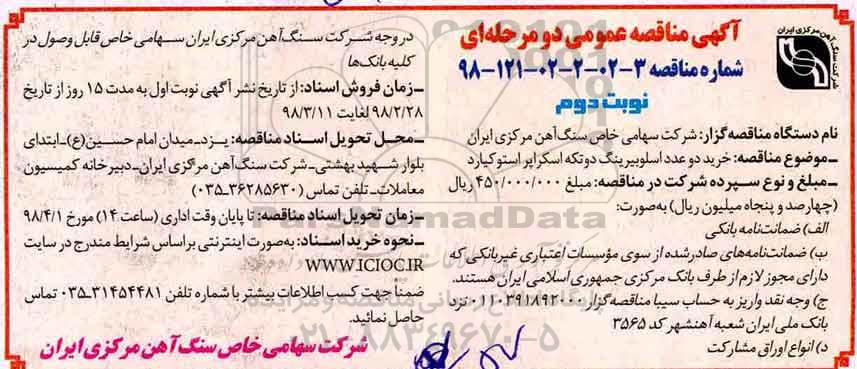 آگهی مناقصه عمومی دو مرحله‌ای
شماره مناقصه ۳-۰۲-۲-۰۲-۱۲۱-۹۸
نوبت دوم
شرکت سنگ آهن مرکزی ایران
نام دستگاه مناقصه‌گزار: شرکت سهامی خاص سنگ‌آهن مرکزی ایران
ـ موضوع مناقصه: خرید دو عدد اسلوبیرینگ دوتکه اسکراپر استوکیارد
ـ مبلغ و نوع سپرده شرکت در مناقصه: مبلغ ۴۵۰/۰۰۰/۰۰۰ ریال
(چهارصد و پنجاه میلیون ریال) به‌صورت:
الف) ضمانت‌نامه بانکی
ب) ضمانت‌نامه‌های صادرشده از سوی مؤسسات اعتباری غیربانکی که
دارای مجوز لازم از طرف بانک مرکزی جمهوری اسلامی ایران هستند.
ج) وجه نقد واریز به حساب سیبا مناقصه‌گزار ۰۱۱۰۳۹۱۸۹۲۰۰۰ نزد
بانک ملی ایران شعبه آهنشهر کد ۳۵۶۵
د) انواع اوراق مشارکت
در وجه شرکت سنگ‌آهن مرکزی ایران سهامی خاص قابل وصول در
کلیه بانک‌ها
ـ زمان فروش اسناد: از تاریخ نشر آگهی نوبت اول به مدت ۱۵ روز از تاریخ
۹۸/۲/۲۸ لغایت ۹۸/۳/۱۱
ـ محل تحویل اسناد مناقصه: یزد ـ میدان امام حسین(ع) ـ ابتدای
بلوار شهید بهشتی ـ شرکت سنگ‌آهن مرکزی ایران ـ دبیرخانه کمیسیون
معاملات ـ تلفن تماس (۳۶۲۸۵۶۳۰-۰۳۵)
ـ زمان تحویل اسناد مناقصه: تا پایان وقت اداری (ساعت ۱۴) مورخ ۹۸/۴/۱
ـ نحوه خرید اسناد: به‌صورت اینترنتی براساس شرایط مندرج در سایت
WWW.ICIOC.IR
ضمناً جهت کسب اطلاعات بیشتر با شماره تلفن ۳۱۴۵۴۴۸۱-۰۳۵ تماس
حاصل نمائید.
شرکت سهامی خاص سنگ آهن مرکزی ایران
ParsNamadData
۰۲۱-۸۸۳۴۹۶۷۰-۵